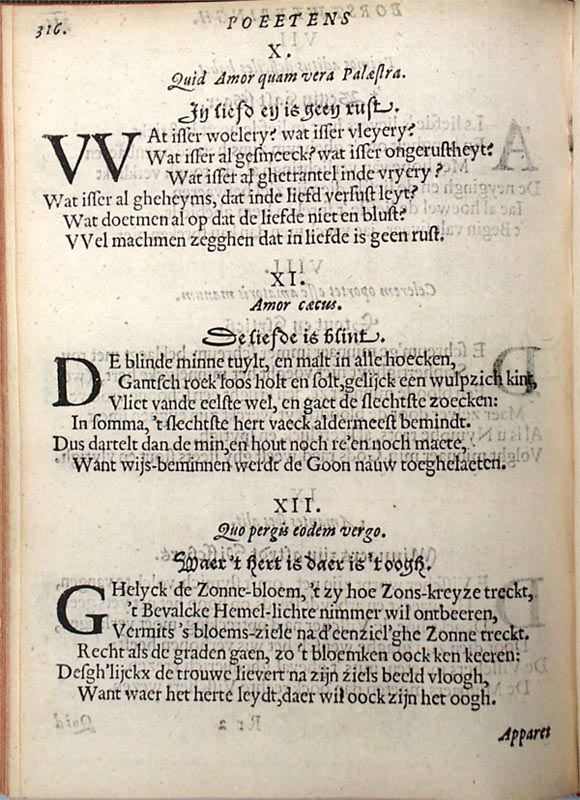 316. POEETENS
X.
Quid Amor quam vera Palæstra.
In liefd en is geen rust.
WAt isser woelery? wat isser vleyery?
Wat isser al gesmeeck? wat isser ongerustheyt?
Wat isser al ghetrantel inde vryery?
Wat isser al gheheyms, dat inde liefd versust leyt?
Wat doetmen al op dat de liefde niet en blust?
VVel machmen zegghen dat in liefde is geen rust.
XI.
Amor cæcus.
De liefde is blint.
DE blinde minne tuylt, en malt in alle hoecken,
Gantsch roek'loos holt en solt, gelijck een wulpzich kint,
Vliet vande eelste wel, en gaet de slechtste zoecken:
In somma, 't slechtste hert vaeck aldermeest bemindt.
Dus dartelt dan de min, en hout noch re'en noch maete,
Want wijs-beminnen werdt de Goon nauw toeghelaeten.
XII.
Quo pergis eodem vergo.
Waer 't hert is daer is 't oogh.
GHelyck de Zonne-bloem, 't zy hoe Zons-kreyze treckt,
't Bevalcke Hemel-lichte nimmer wil ontbeeren,
Vermits 's bloems-ziele na d'eenziel'ghe Zonne treckt.
Recht als de graden gaen, zo 't bloemken oock ken keeren:
Desgh'lijckx de trouwe lievert na zijn ziels beeld vloogh,
Want waer het herte leydt, daer wil oock zijn het oogh.
Apparet